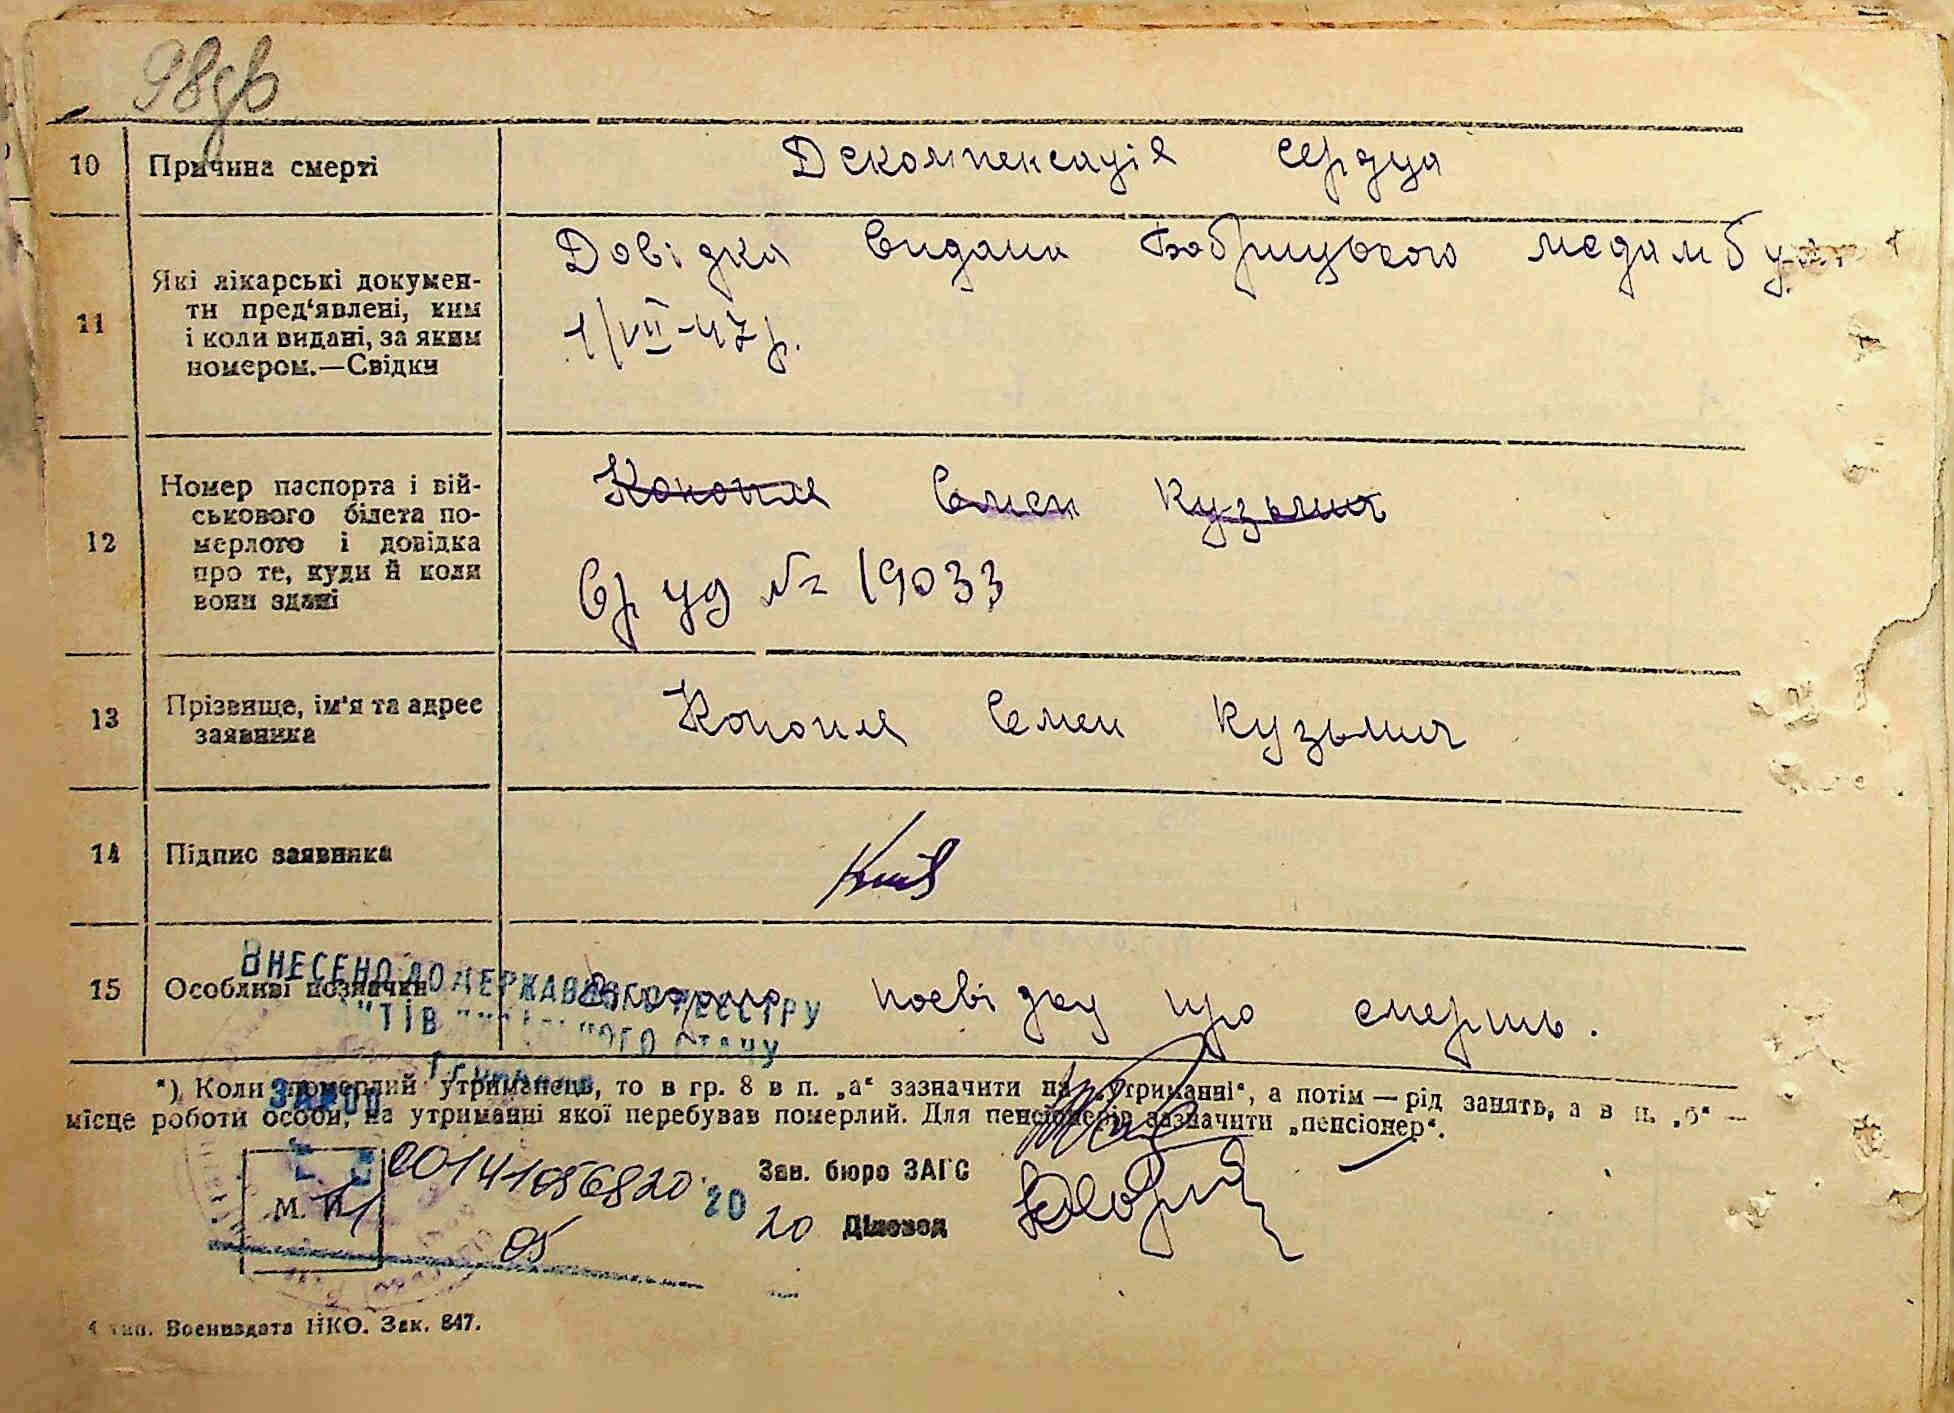 98
10 Причина смерті Декомпенсація сердця
11 Які лікарські докумен-
ти пред'явлені, ким
і коли видані, за яким
номером.—Свідки
Довідка видана Бобрицькою медамбул
1/VII-47р.
12 Номер паспорта і вій-
ськового білета по-
мерлого і довідка
про те, куди й коли
вони здані
Конопля Семен Кузьмич
Вр уд № 19033
13 Прізвище, ім'я та адрес
заявника
Конопля Семен Кузьмич
14 Підпис заявника
15 Особливі позначки посвідку про смерть.
ВНЕСЕНО ДО ДЕРЖАВНОГО РЕЄСТРУ
СТАНУ
*) Коли померлий утриманець, то в гр. 8 в п. „а“ зазначити на „утриманні“, а потім — рід занять, а в п. „б“ —
місце роботи особи, на утриманні якої перебував померлий. Для пенсіонерів зазначити „пенсіонер“.
ЗА №
Зав. бюро ЗАГС
М. П. 11 05 20 20 Діловод
4 тип. Воениздата НКО. Зак. 847.